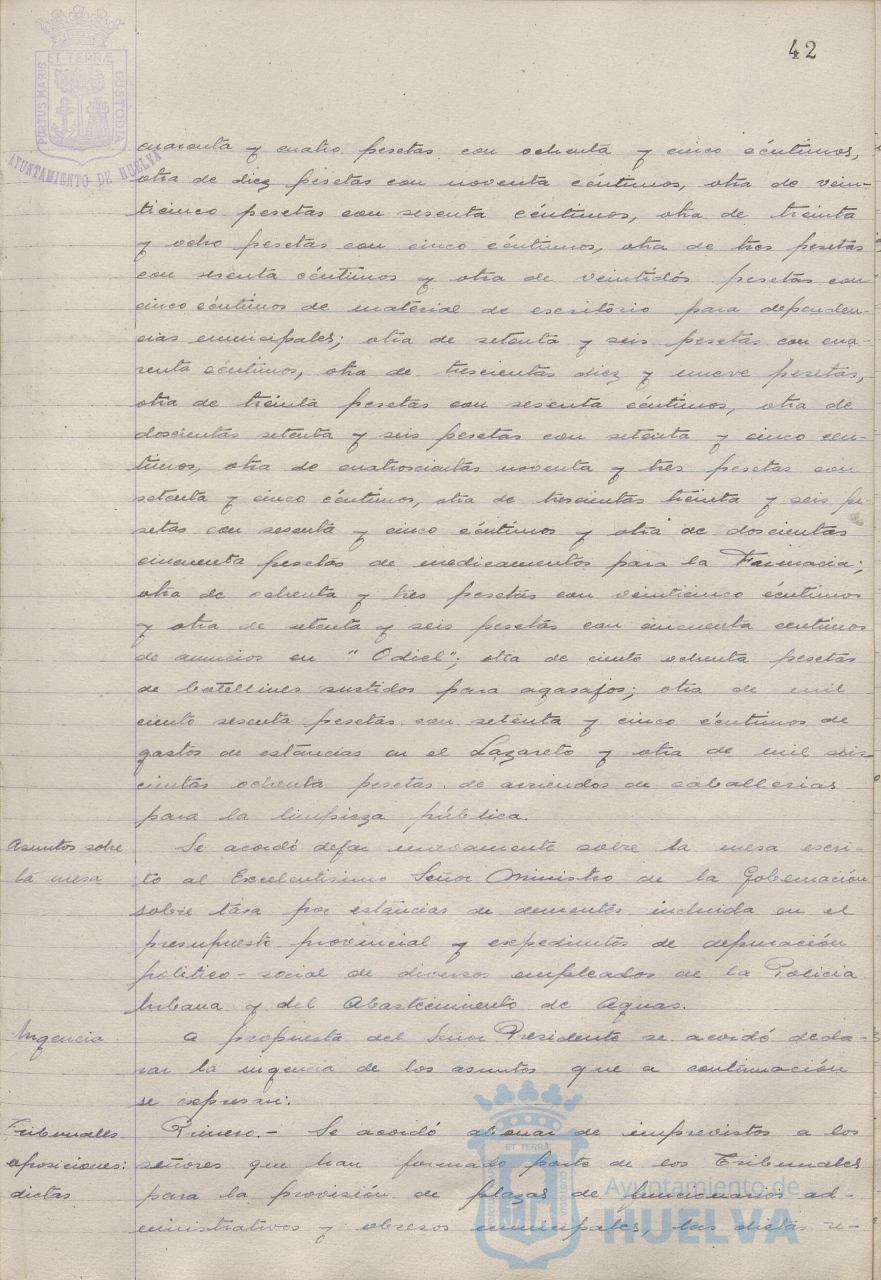 42
PORTUS MARIS ET TERRÆ CUSTODIA
AYUNTAMIENTO DE HUELVA
cuarenta y cuatro pesetas con ochenta y cinco céntimos,
otra de diez pesetas con noventa céntimos, otra de vein-
ticinco pesetas con sesenta céntimos, otra de treinta
y ocho pesetas con cinco céntimos, otra de tres pesetas
con sesenta céntimos y otra de veintidós pesetas con
cinco céntimos de material de escritorio para dependen-
cias municipales; otra de setenta y seis pesetas con cua-
renta céntimos, otra de trescientas diez y nueve pesetas,
otra de treinta pesetas con sesenta céntimos, otra de
doscientas setenta y seis pesetas con setenta y cinco cén-
timos, otra de cuatroscientas noventa y tres pesetas con
setenta y cinco céntimos, otra de trescientas treinta y seis pe-
setas con sesenta y cinco céntimos y otra de doscientas
cincuenta pesetas de medicamentos para la Farmacia;
otra de ochenta y tres pesetas con veinticinco céntimos
y otra de setenta y seis pesetas con cincuenta céntimos
de anuncios en "Odiel"; otra de ciento ochenta pesetas
de botellines surtidos para agasajos; otra de mil
ciento sesenta pesetas con setenta y cinco céntimos de
gastos de estancias en el Lazareto y otra de mil seis-
cientas ochenta pesetas de arriendos de caballerias
para la limpieza pública.
Asuntos sobre
la mesa
Se acordó dejar nuevamente sobre la mesa escri-
to al Excelentisimo Señor Ministro de la Gobernación
sobre tasa por estancias de dementes incluida en el
presupuesto provincial y expedientes de depuración
politico-social de diversos empleados de la Policia
Urbana y del Abastecimiento de Aguas.
Urgencia
A propuesta del Señor Presidente se acordó decla-
rar la urgencia de los asuntos que a continuación
se expresan:
Tribunales
oposiciones:
dietas
Primero.- Se acordó abonar de imprevistos a los
señores que han formado parte de los Tribunales
para la provisión de plazas de funcionarios ad-
ministrativos y obreros municipales, las dietas re-
Ayuntamiento de
HUELVA